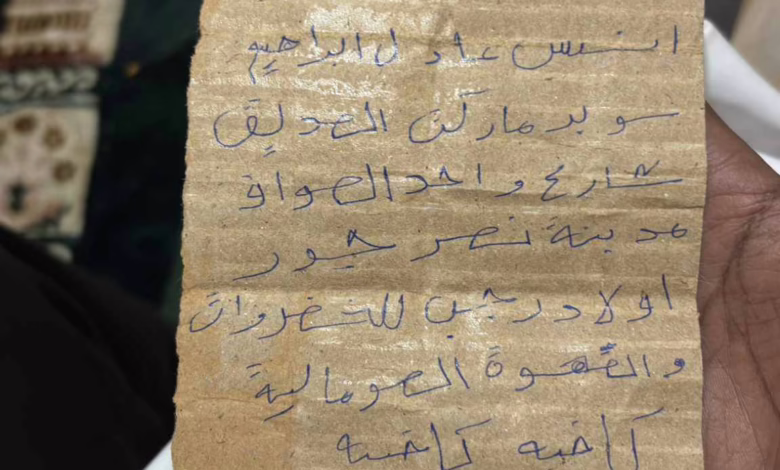 انس عادل ابراهيم
سوبر ماركت الصديق
شارع واحد الصواف
مدينة نصر جبور
اولاد رجب للخضروات
والقهوة الصومالية